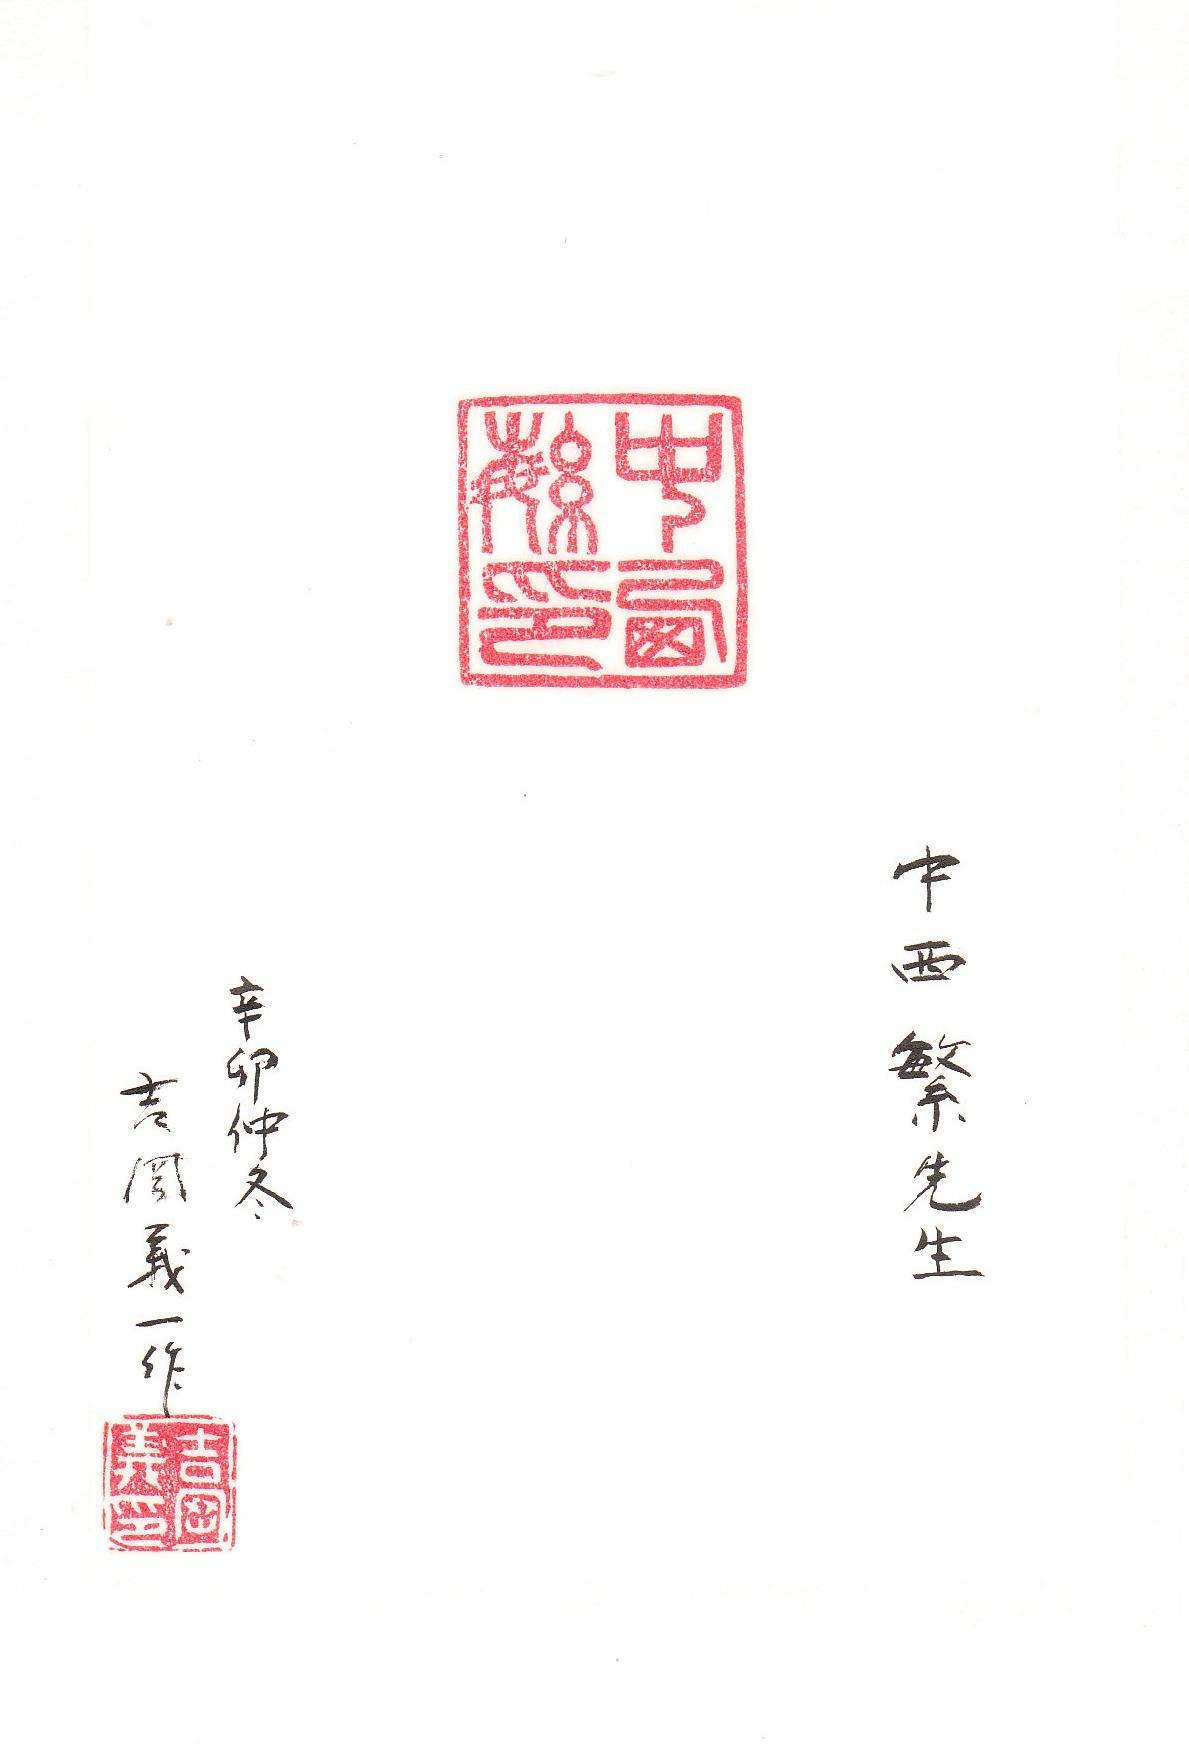 中西
繁印
中西繁先生
辛卯仲冬
吉岡義一作
吉岡
義印